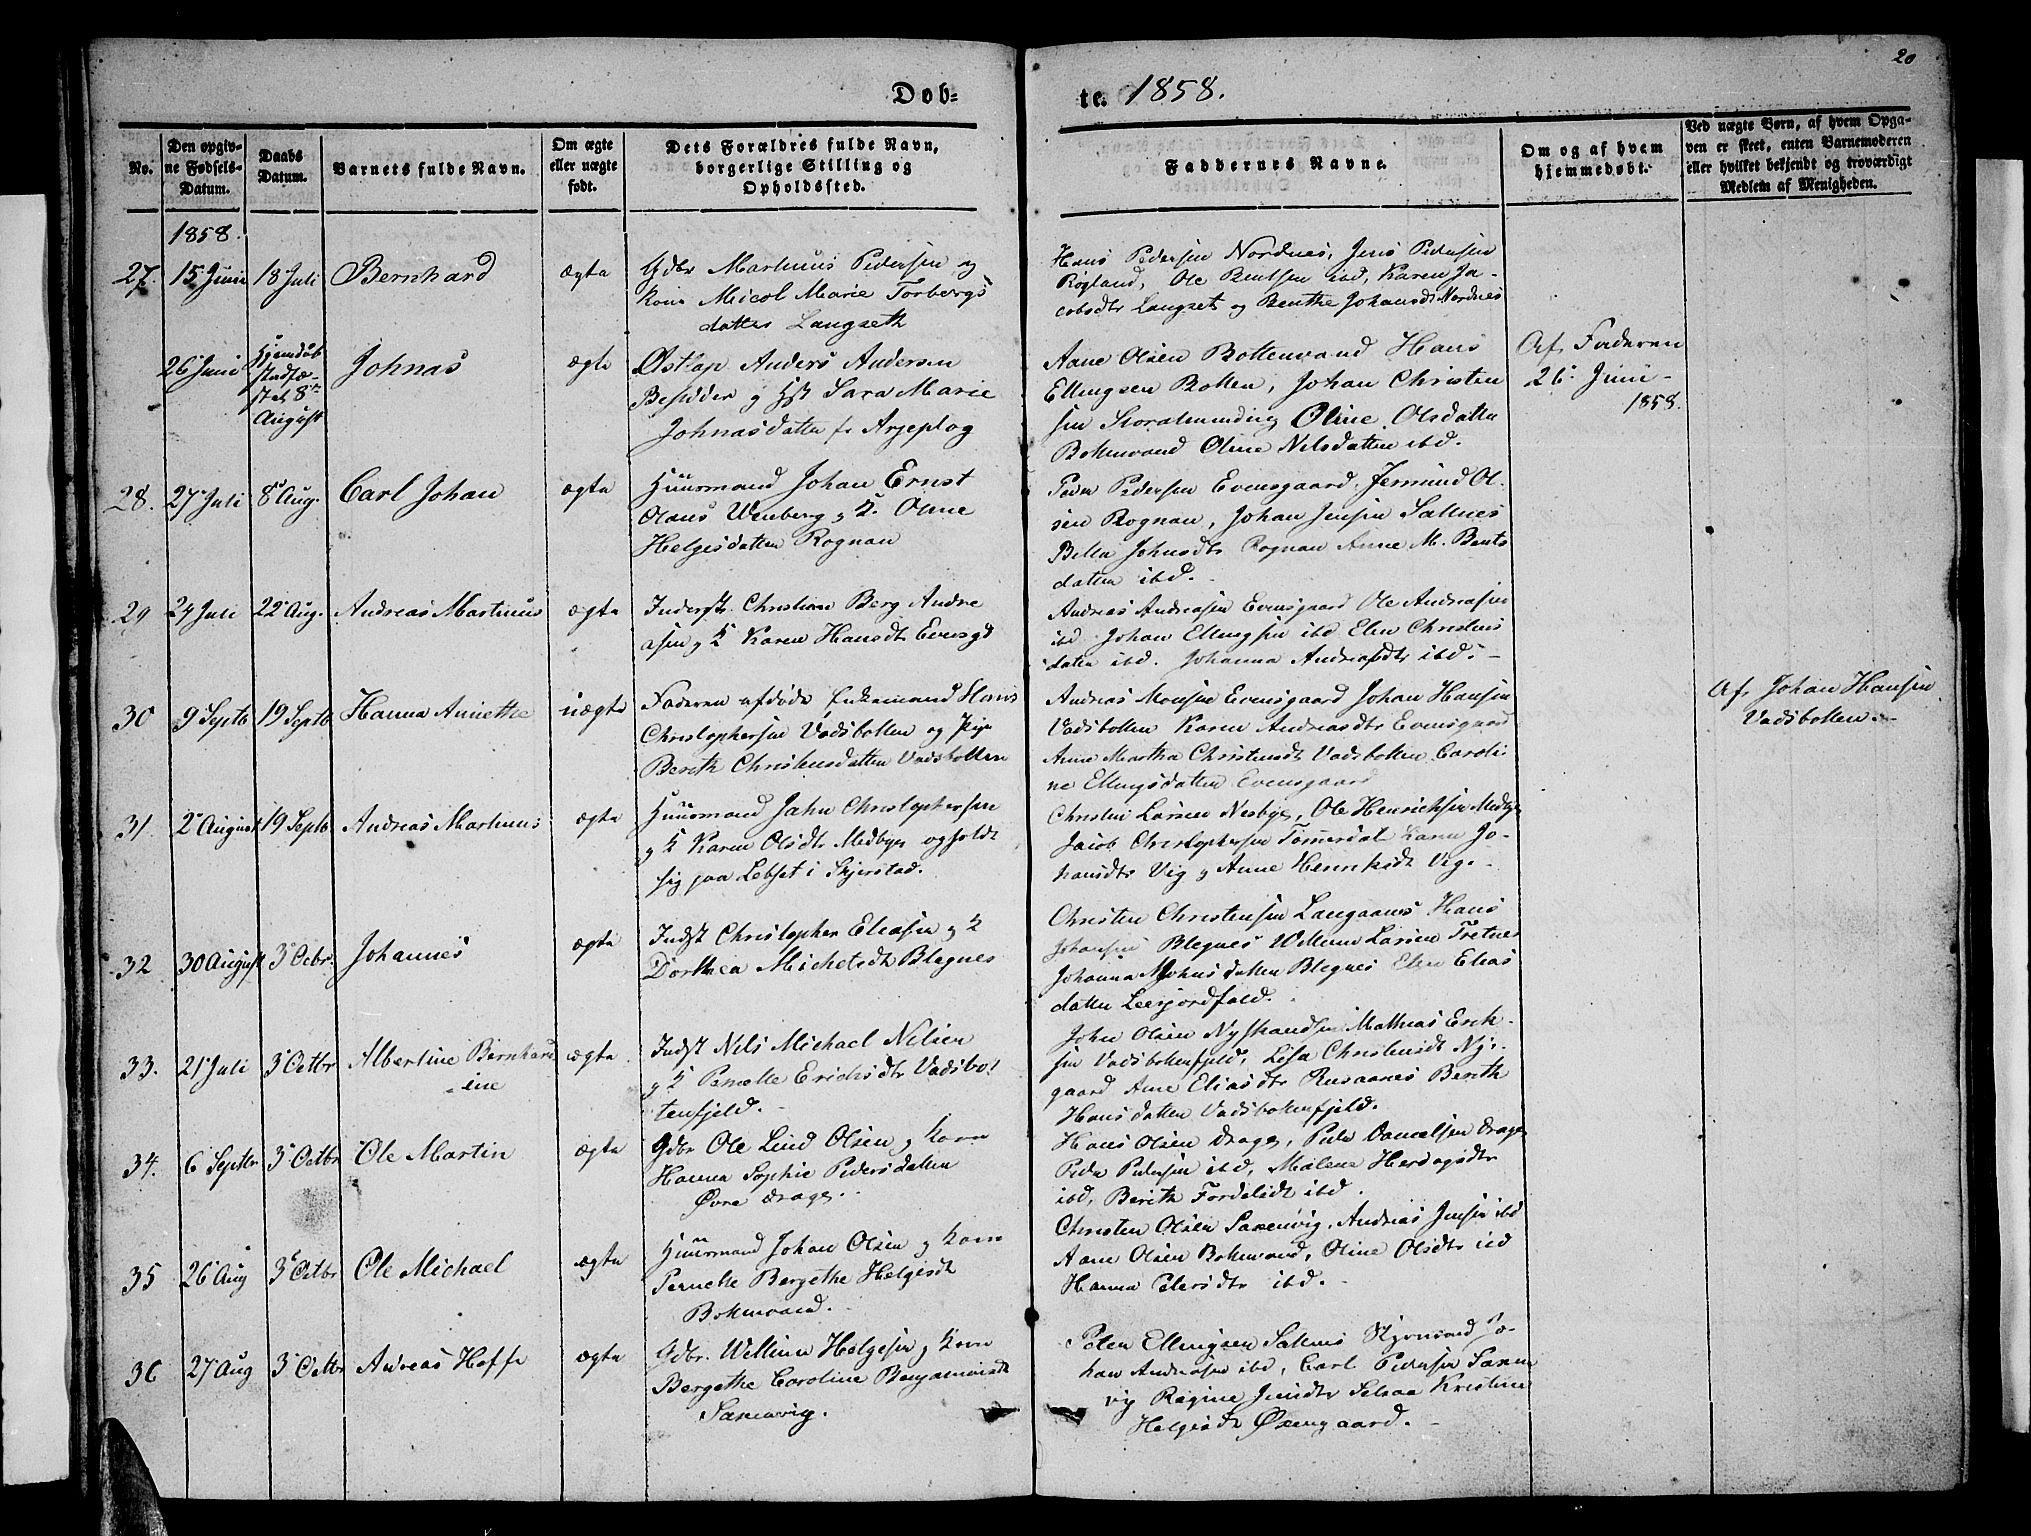 20
Døb=
te. 1858.
No.
Den opgiv-
ne Fødsels-
Datum.
Daabs
Datum.
Barnets fulde Navn.
Om ægte
eller uægte
født.
Dets Forældres fulde Navn,
borgerlige Stilling og
Opholdssted.
Faddernes Navne.
Om og af hvem
hjemmedøbt.
Ved uægte Børn, af hvem Opga-
ven er skeet, enten Barnemoderen
eller hvilket bekjendt og troværdigt
Medlem af Menigheden.
1858.
27. 15 Juni 18 Juli Bernhard ægte
Gdbr Marhinus Pedersen og
Kone Micol Marie Torbergs
datter Langseth
Hans Pedersen Nordnes, Jens Pedersen
Røgland, Ole Bentsen ibd, Karen Ja-
cobsdtr Langset og Benthe Johansdt Nordnes
26 Juni
Hjemdøb
stadfæ-
stet 8de
August
Johnas ægte
Østlap Anders Andersen
Besidder og Hst Sara Marie
Johnasdatter fr Arjeplog
Aane Olsen Bottenvand Hans
Ellingsen Botten, Johan Christen
sen Storalmunding Oline Olsdatter
Bottenvand Oline Nilsdatter ibd.
Af Faderen
26 Juni
1858.
28. 27 Juli 8 Aug. Carl Johan ægte
Huusmand Johan Ernst
Olaus Wenberg og K. Oline
Helgesdatter Rognan
Peder Pedersen Evensgaard, Jermund Ol-
sen Rognan, Johan Jensen Saltnes
Bella Johnsdtr Rognan Anne M. Bents
datter ibd.
29 24 Juli 22 Aug. Andreas Martinus ægte
Inderst Christian Berg Andre
asen og K Karen Hansdtr Evensgd
Andreas Andreasen Evensgaard Ole Andreasen
ibd Johan Ellingsen ibd Elen Christens
datter ibd. Johanna Andreasdtr ibd. -
30 9 Septb 19 Septb Hanna Annethe uægte
Faderen afdøde Enkemand Hans
Christophersen Vadsbotten og Pige
Berith Christensdatter Vadsbotten
Andreas Monsen Evensgaard Johan Hansen
Vadsbotten Karen Andreasdtr Evensgaard
Anne Martha Christensdt Vadsbotten Caroli
ne Ellingsdatter Evensgaard
Af Johan Hansen
Vadsbotten. -
31. 2 August 19 Septb Andreas Marhinus ægte
Huusmand Jahn Christophersen
og K Karen Olsdtr Medbye opholdt
sig paa Lebset i Skjerstad.
Christen Larsen Nesbye, Ole Henrichsen Medbye
Jacob Christophersen Tømerdal Karen Jo-
hansdtr Vig og Anne Henriksdt Vig. -
32 30 August 3 Octbr. Johannes ægte
Indst Christopher Eliasen og K
Dorthea Michelsdt Blegnes
Christen Christensen Langaanes Hans
Johansen Blegnes Willum Larsen Tretnes
Johanna M Johns datter Blegnes Elen Elias
datter Leerjordfald.
33. 21 Juli 3 Octbr Albertine Bernhard
ine ægte
Indst Nils Michael Nilsen
og K Pernelle Erichsdtr Vadsbot
tenfjeld. -
John Olsen Nystrandsen Mathias Erik-
sen Vadsbottenfjeld, Lisa Christensdt Ny-
gaard Ane Eliasdtr Rusaanes Berith
Hans datter Vadsbottenfjeld.
34. 6 Septbr 3 Octbr Ole Martin ægte
Gdbr Ole Lund Olsen og Kone
Hanna Sophie Pedersdatter
Øvre Drage.
Hans Olsen Drage, Peder Danielsen Drage
Peder Pedersen ibd, Malene Herdagsdtr
ibd, Berith Fordelsdt ibd.
35 26 Aug 3 Octbr Ole Michael ægte
Huusmand Johan Olsen og Kone
Pernelle Bergethe Helgesdt
Bottenvand. -
Christen Olsen Saxenvig, Andreas Jensen ibd
Aane Olsen Bottenvand, Oline Olsdtr ibd
Hanna Petersdtr ibd. -
36 27 Aug 3 Octbr Andreas Hoffe ægte
Gdbr. Willum Helgesen og Kone
Bergethe Caroline Benjaminsdt
Saxenvig.
Peter Ellingsen Saltnes Stjornsand Jo-
han Andreasen ibd, Carl Pedersen Saxen
vig Regine Jensdtr Setsaa Kristine
Helgesdt Øxengaard. -